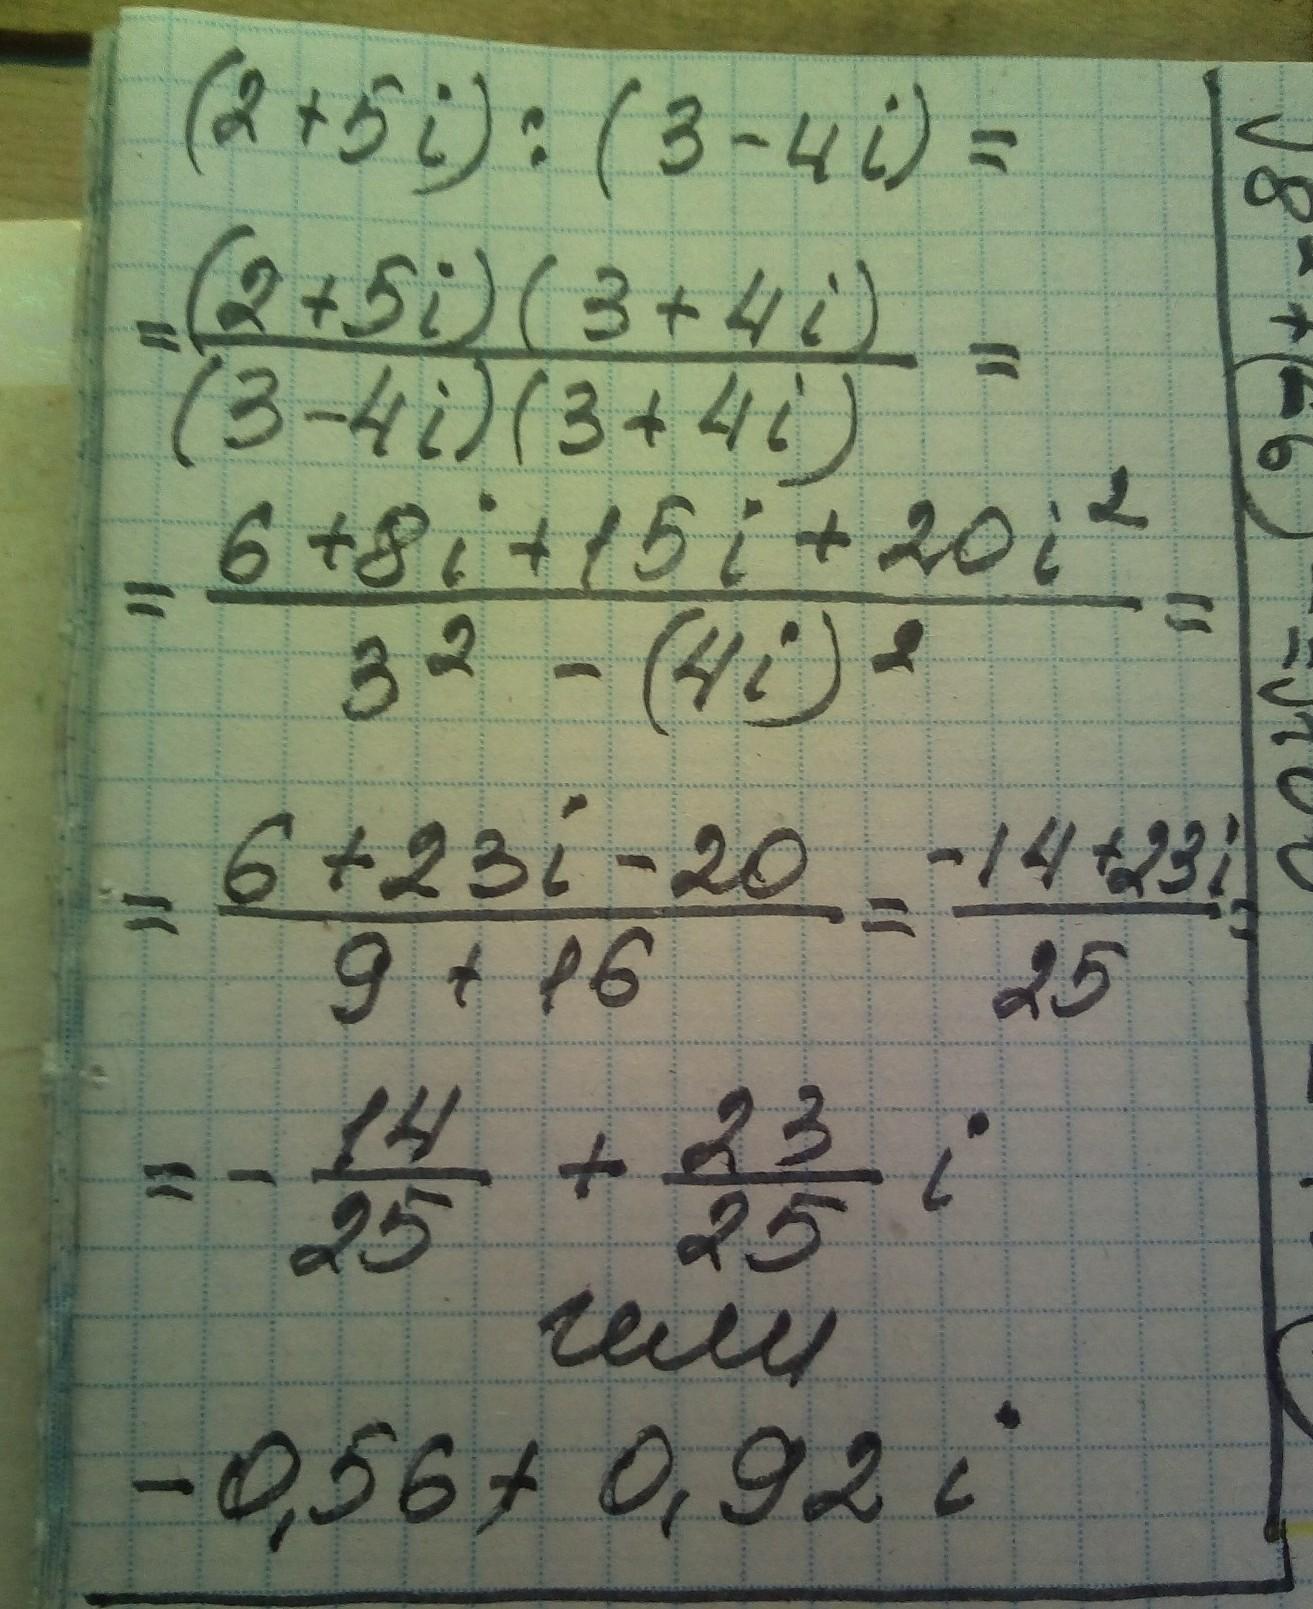 (2+5i):(3-4i)=
=(2+5i)(3+4i)=
(3-4i)(3+4i)
=6+8i+15i+20i²=
3²-(4i)²
=6+23i-20=-14+23i=
9+16 25
=-14/25+23/25 i
или
-0,56+0,92i